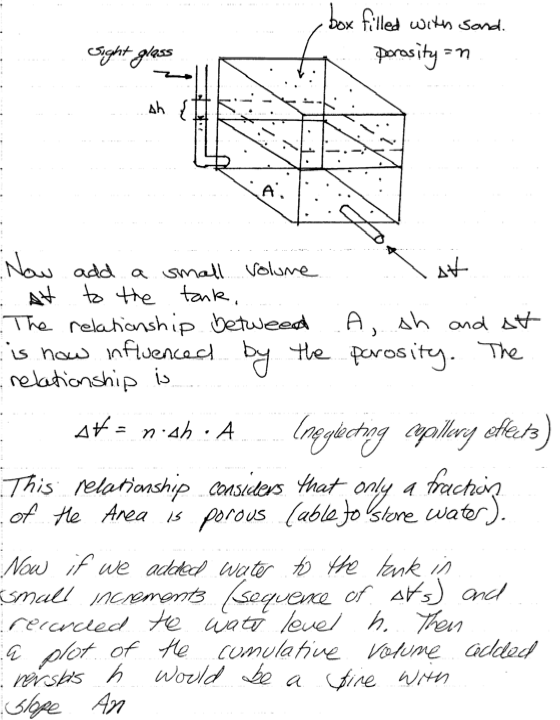 box filled with sand.
porosity = n
sight glass
Δh
A.
ΔV
Now add a small volume
ΔV to the tank.
The relationship between A, Δh and ΔV
is now influenced by the porosity. The
relationship is
ΔV = n·Δh·A (neglecting capillary effects)
This relationship considers that only a fraction
of the Area is porous (able to store water).
Now if we added water to the tank in
small increments (sequence of ΔVs) and
recorded the water level h. Then
a plot of the cumulative volume added
versus h would be a line with
slope An